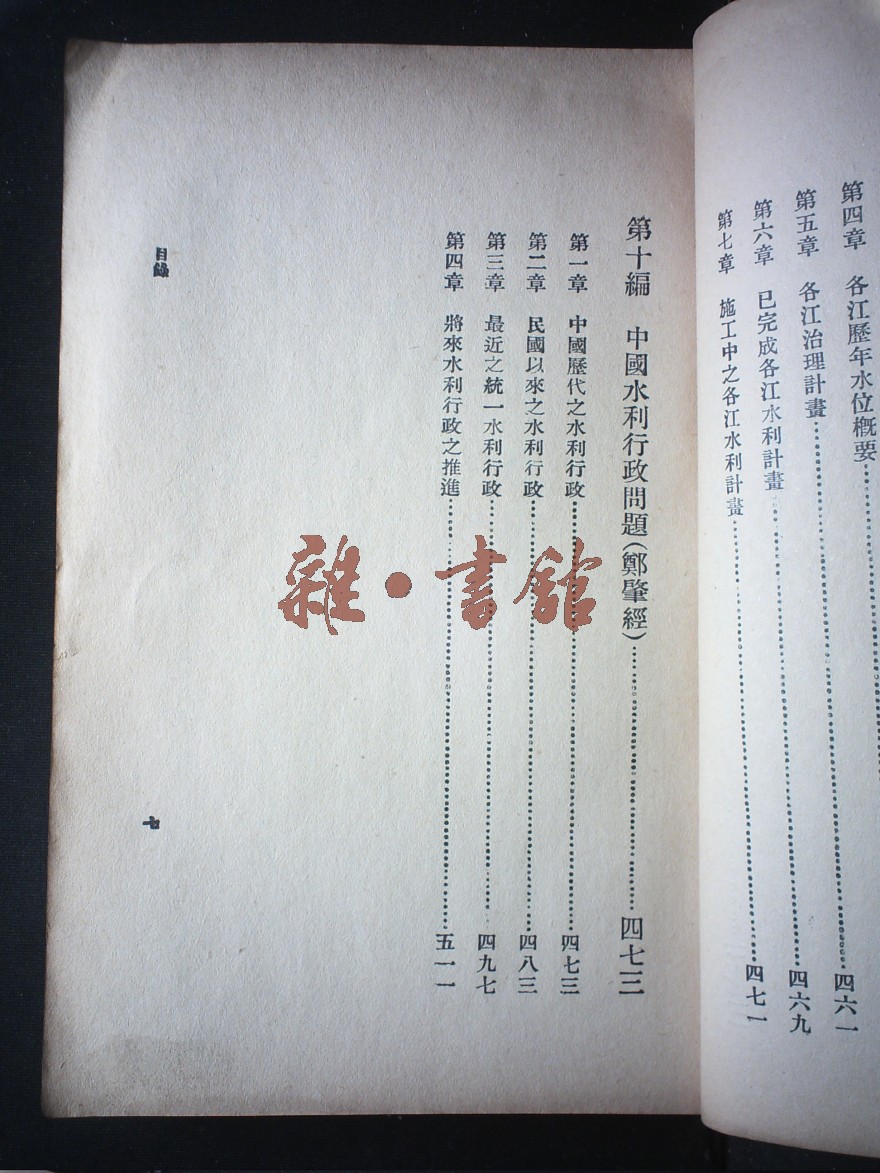 第四章　各江歷年水位概要……四六一
第五章　各江治理計畫……四六九
第六章　已完成各江水利計畫……
第七章　施工中之各江水利計畫……四七一
第十編　中國水利行政問題(鄭肇經)……四七三
第一章　中國歷代之水利行政……四七三
第二章　民國以來之水利行政……四八三
第三章　最近之統一水利行政……四九七
第四章　將來水利行政之推進……五一一
目錄
七
雜·書館